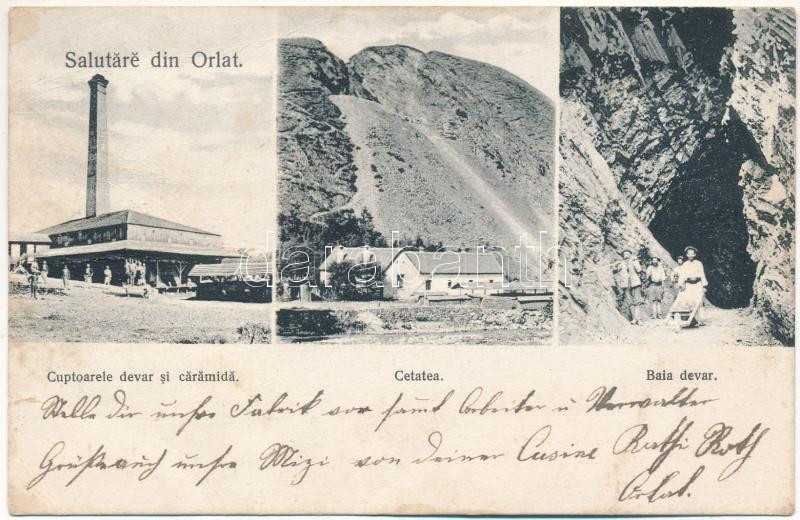 Salutărĕ din Orlat.
darabanth
Cuptoarele devar şi cărămidă.
Cetatea.
Baia devar.
Stelle dir unsre Fabrik vor samt Arbeiter u Verwalter
Grüße auch unsre Mizi von deiner Cusine Rathi Roth
Orlat.